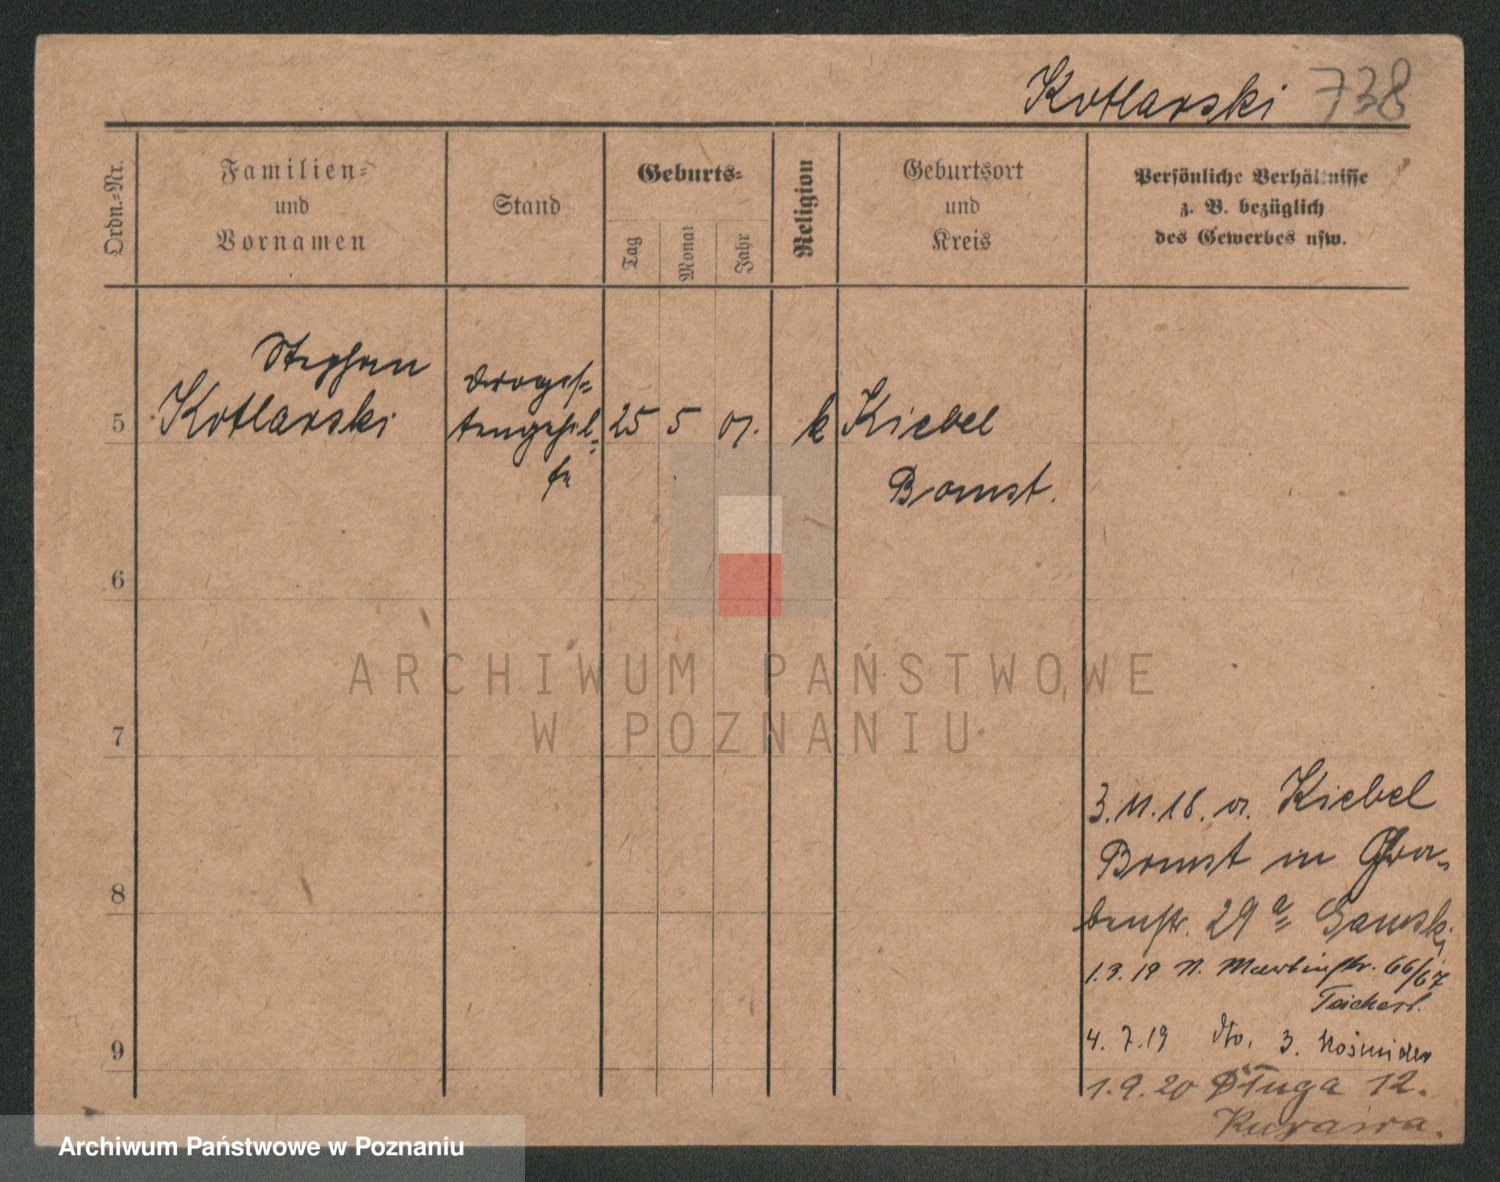 Kotlarski 738
Ordn.=Nr.
Familien=
und
Vornamen
Stand
Geburts=
Tag
Monat
Jahr
Religion
Geburtsort
und
Kreis
Persönliche Verhältnisse
z. B. bezüglich
des Gewerbes usw.
Stephan
5 Kotlarski 25 5 01. k Kiebel
Bomst.
6
7
8
9
3.11.18. v. Kiebel
Bomst in Gra-
benstr. 29 a
1.3.19 n. Martinstr. 66/67
Teichert.
4.7.19 dto. 3.
1.9.20 Długa 12.
Kujawa.
ARCHIWUM PAŃSTWOWE
W POZNANIU
Archiwum Państwowe w Poznaniu